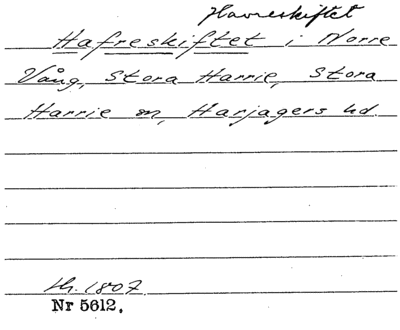 Havreskiftet
Hafreskiftet i Norre
Vång, Stora Harrie, Stora
Harrie sn, Harjagers hd.
1807.
Nr 5612.